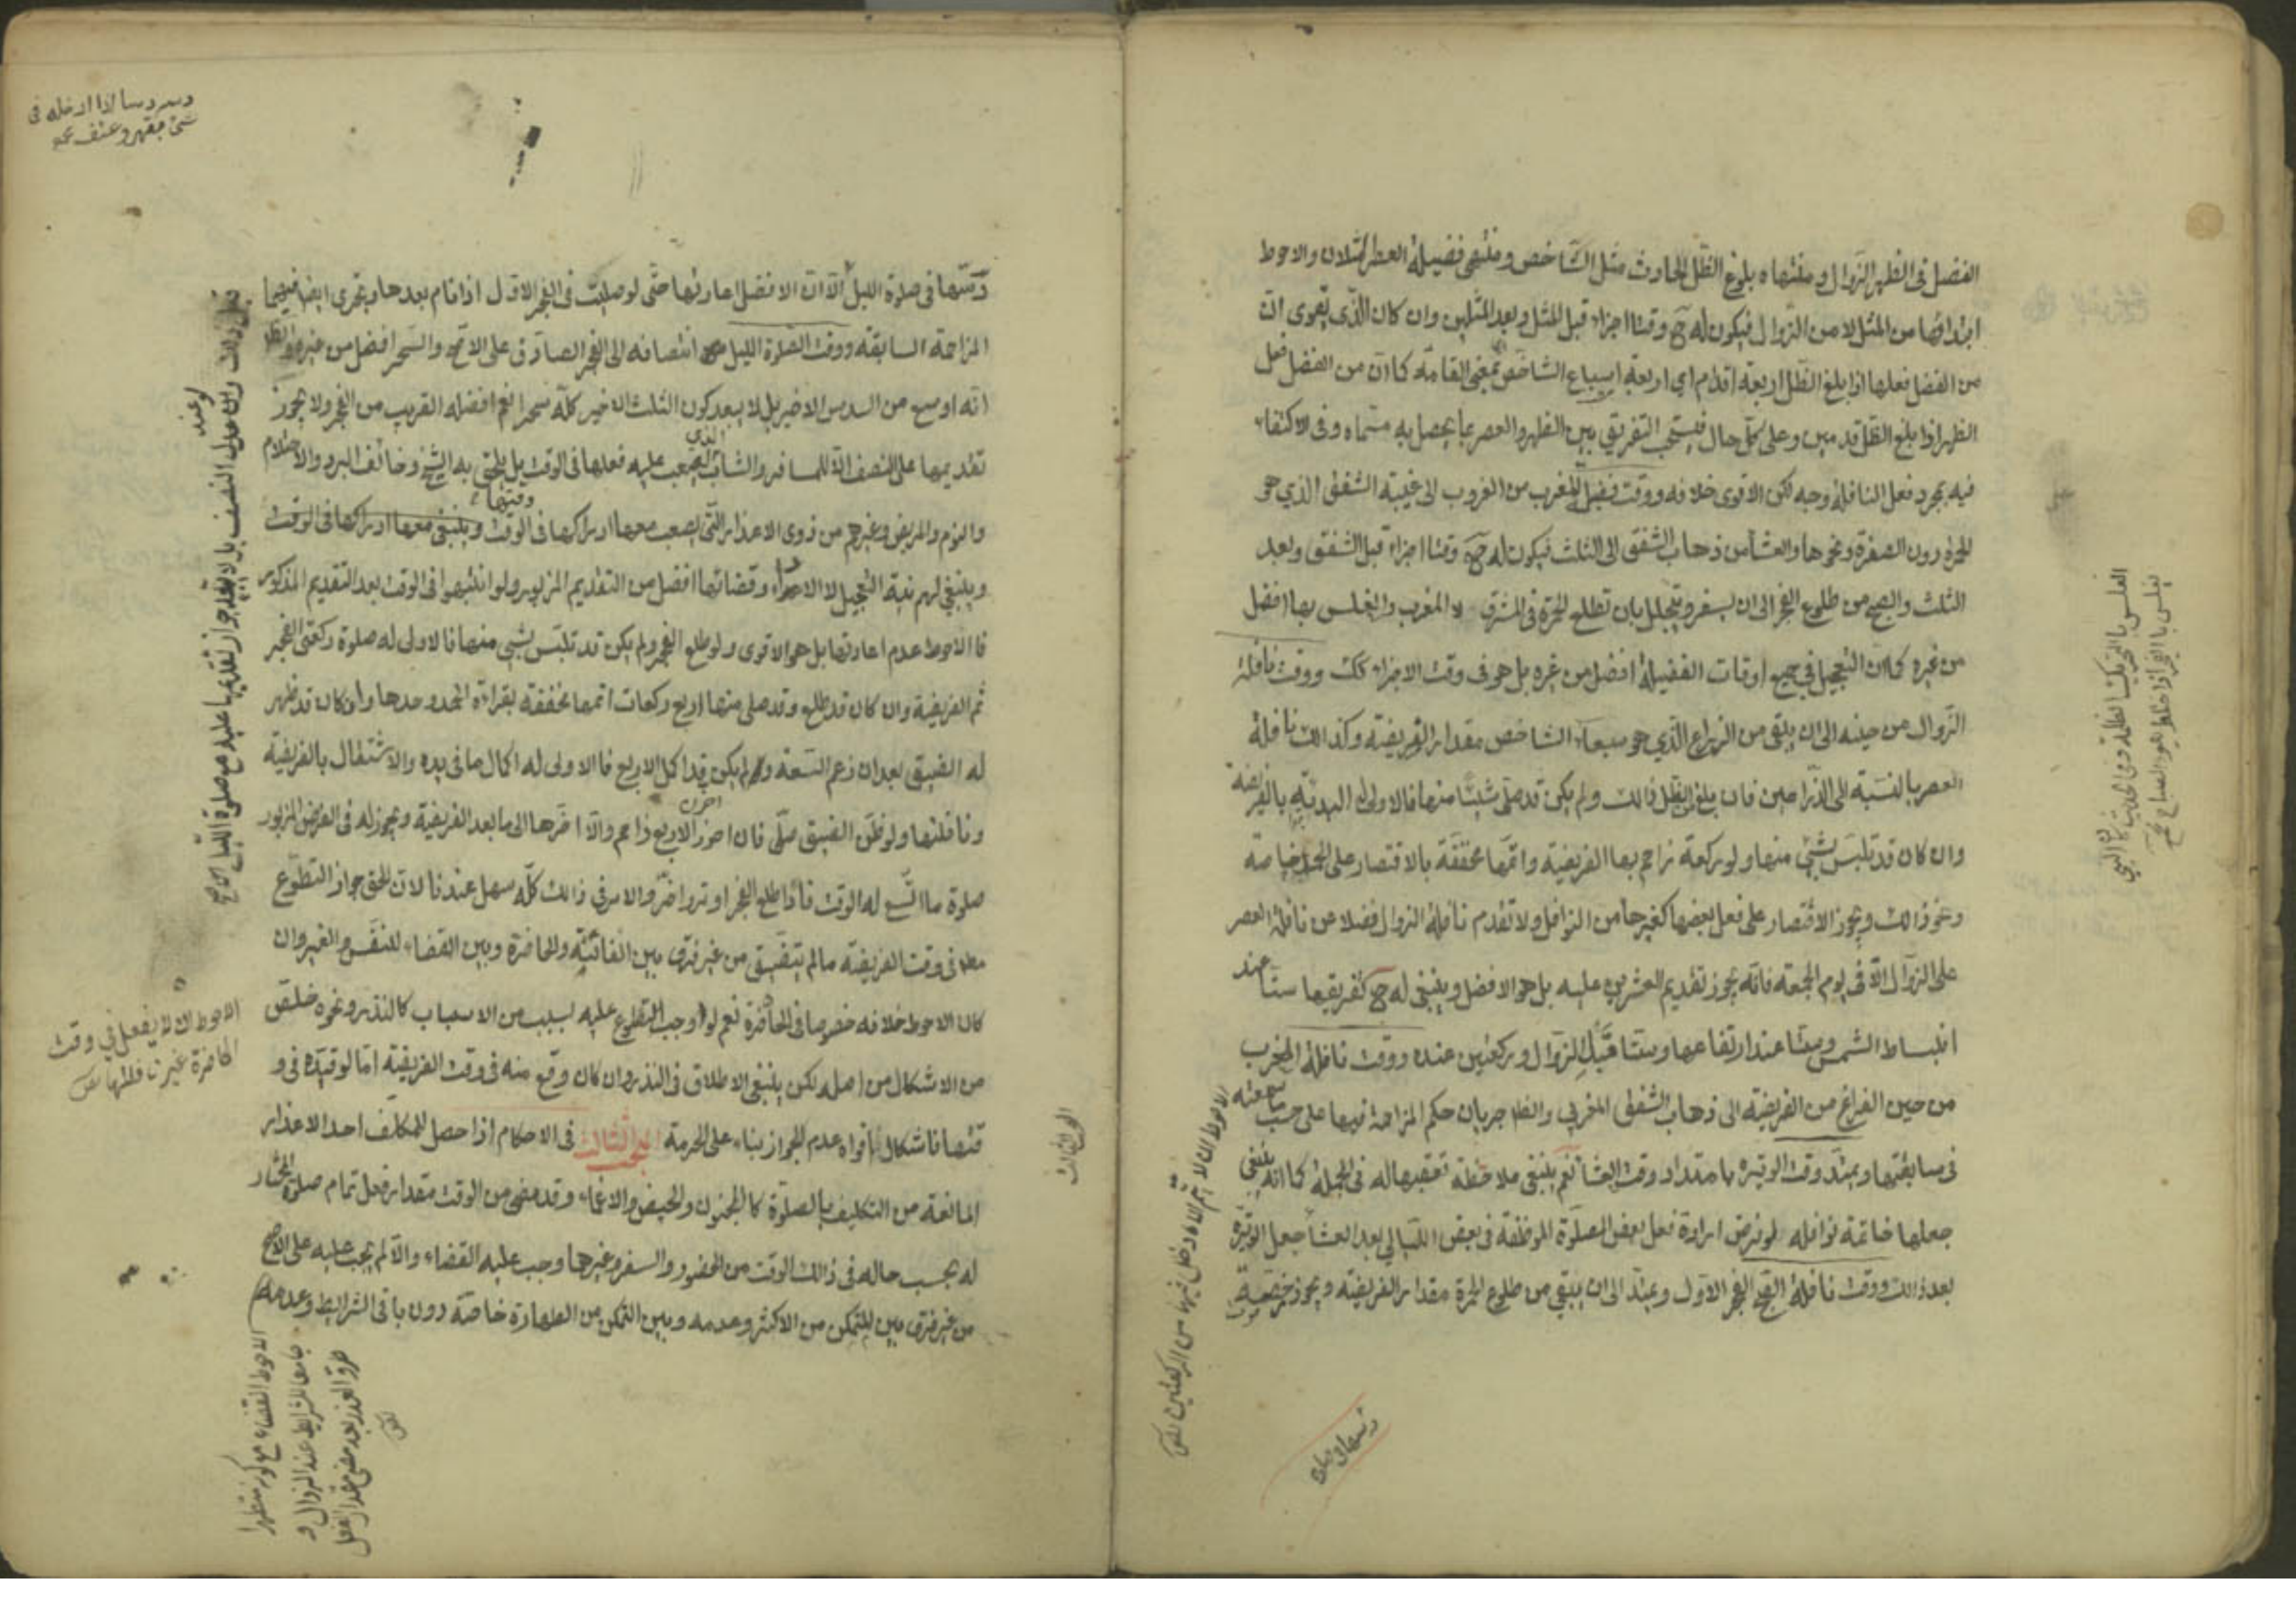 الفضل فى الظهر الزوال ومنتهاه بلوغ الظل الحادث مثل الشاخص ومنتهى فضيلة العصر المثلان والاحوط
ابتدائها من المثل لا من الزوال فيكون له ح وقتا اجزاء قبل المثل وبعد المثلين وان كان الذى يقوى ان
من الفضل فعلها اذا بلغ الظل اربعة اقدام اى اربعة اسباع الشاخص بمعنى القامة كما ان من الفضل فعل
الظهر اذا بلغ الظل قدمين وعلى كل حال فيستحب التفريق بين الظهر والعصر بما يحصل به مسماه وفى الاكتفاء
فيه بمجرد فعل النافلة وجه لكن الاقوى خلافه ووقت فضل المغرب من الغروب الى غيبة الشفق الذي هو
الحمرة دون الصفرة ونحوها والعشا من ذهاب الشفق الى الثلث فيكون له ح وقتا اجزاء قبل الشفق وبعد
الثلث والصبح من طلوع الفجر الى ان يسفر ويتجلل بان تطلع الحمرة فى المشرق والغلس بها افضل
من غيره كما ان التعجيل فى جميع اوقات الفضيلة افضل من غيره بل هو فى وقت الاجزاء كك ووقت نافلة
الزوال من حينه الى ان يبقى من الذراع الذي هو سبعا الشاخص مقدار الفريضة وكذالك نافلة
العصر بالنسبة الى الذراعين فان بلغ الظل ذالك ولم يكن قد صلى شيئا منها فالاولى له البدئة بالفريضة
وان كان قد تلبس بشئ منها ولو بركعة زاحم بها الفريضة واتمها مخففة بالاقتصار على الحمد خاصة
ونحو ذالك ويجوز الاقتصار على فعل بعضها كغيرها من النوافل ولا تقدم نافلة الزوال فضلا عن نافلة العصر
على الزوال الا فى يوم الجمعة فانه يجوز تقديم العشرين عليه بل هو الافضل وينبغى له ح تفريقها ستا عند
انبساط الشمس وستا عند ارتفاعها وستا قبل الزوال وركعتين عنده ووقت نافلة المغرب
من حين الفراغ من الفريضة الى ذهاب الشفق المغربي والظاهر جريان حكم المزاحمة فيها على حسب ما سمعته
فى سابقتها ويمتد وقت الوتيرة بامتداد وقت العشا نعم ينبغى ملاحظة تعقيبها له فى الجملة كما انه ينبغى
جعلها خاتمة نوافله لو فرض ارادة فعل بعض الصلوة الموظفة فى بعض الليالى بعد العشا جعل الوتيرة
بعد ذالك ووقت نافلة الفجر الاول ويمتد الى ان يبقى من طلوع الحمرة مقدار الفريضة ويجوز
دسها فى صلوة
الغلس بالتحريك الظلمة
الاحوط ان لا
دسها فى صلوة الليل الا ان الافضل اعادتها حتى لو صليت فى الفجر الاول اذا نام بعدها ويجرى ايضا فيهما
المزاحمة السابقة ووقت الصلوة الليل انتصافه الى الفجر الصادق على الاصح والسحر افضل من غيره والظاهر
انه اوسع من السدس الاخير بل لا يبعد كون الثلث الاخير كله سحرا نعم افضله القريب من الفجر ولا يجوز
تقديمها على النصف الا للمسافر والشاب الذي يصعب عليه فعلها فى الوقت بل يلحق به الشيخ وخائف البرد والاحتلام
والنوم والمريض وغيرهم من ذوى الاعذار التى يصعب معها ادراكها فى الوقت
وينبغي لهم نية التعجيل لا الاداء وقضائها افضل من التقديم المزبور ولو انتبهوا فى الوقت بعد التقديم المذكور
فالاحوط عدم اعادتها بل هو الاقوى ولو طلع الفجر ولم يكن قد تلبس بشئ منها فالاولى له صلوة ركعتى الفجر
ثم الفريضة وان كان قد طلع وقد صلى منها اربع ركعات اتمها مخففة بقراءة الحمد وحدها وان كان قد ظهر
له الضيق بعد ان زعم السعة ولم يكن قد اكمل الاربع فالاولى له اكمال ما فى يده والاشتغال بالفريضة
ونافلتها ولو ظن الضيق صلى فان احرز الاربع زاحم والا اخرها الى ما بعد الفريضة ويجوز له فى الفرض المزبور
صلوة ما اتسع له الوقت فاذا طلع الفجر اوتر واخر والامر فى ذالك كله سهل عندنا لان الحق جواز التطوع
فى وقت الفريضة ما لم يتضيق من غير فرق بين الفائتة والحاضرة وبين القضاء للنفس والغير وان
كان الاحوط خلافه خصوصا فى الحاضرة نعم لو وجب التطوع عليه لسبب من الاسباب كالنذر ونحوه خلص
من الاشكال من اصله لكن ينبغى الاطلاق فى النذر وان كان وقع منه فى وقت الفريضة اما لو قيده فى و
قتها فاشكال اقواه عدم الجواز بناء على الحرمة المبحث الثالث فى الاحكام اذا حصل للمكلف احد الاعذار
المانعة من التكليف بالصلوة كالجنون والحيض والاغماء وقد مضى من الوقت مقدار فعل تمام صلوة المختار
له بحسب حاله فى ذالك الوقت من الحضور والسفر وغيرها وجب عليه القضاء والا لم يجب عليه على الاصح
من غير فرق بين المتمكن من الاكثر وعدمه وبين التمكن من الطهارة خاصة دون باقى الشرايط وعدمه
الاحوط ان لا يفعل في وقت
الحاضرة غير نافلتها